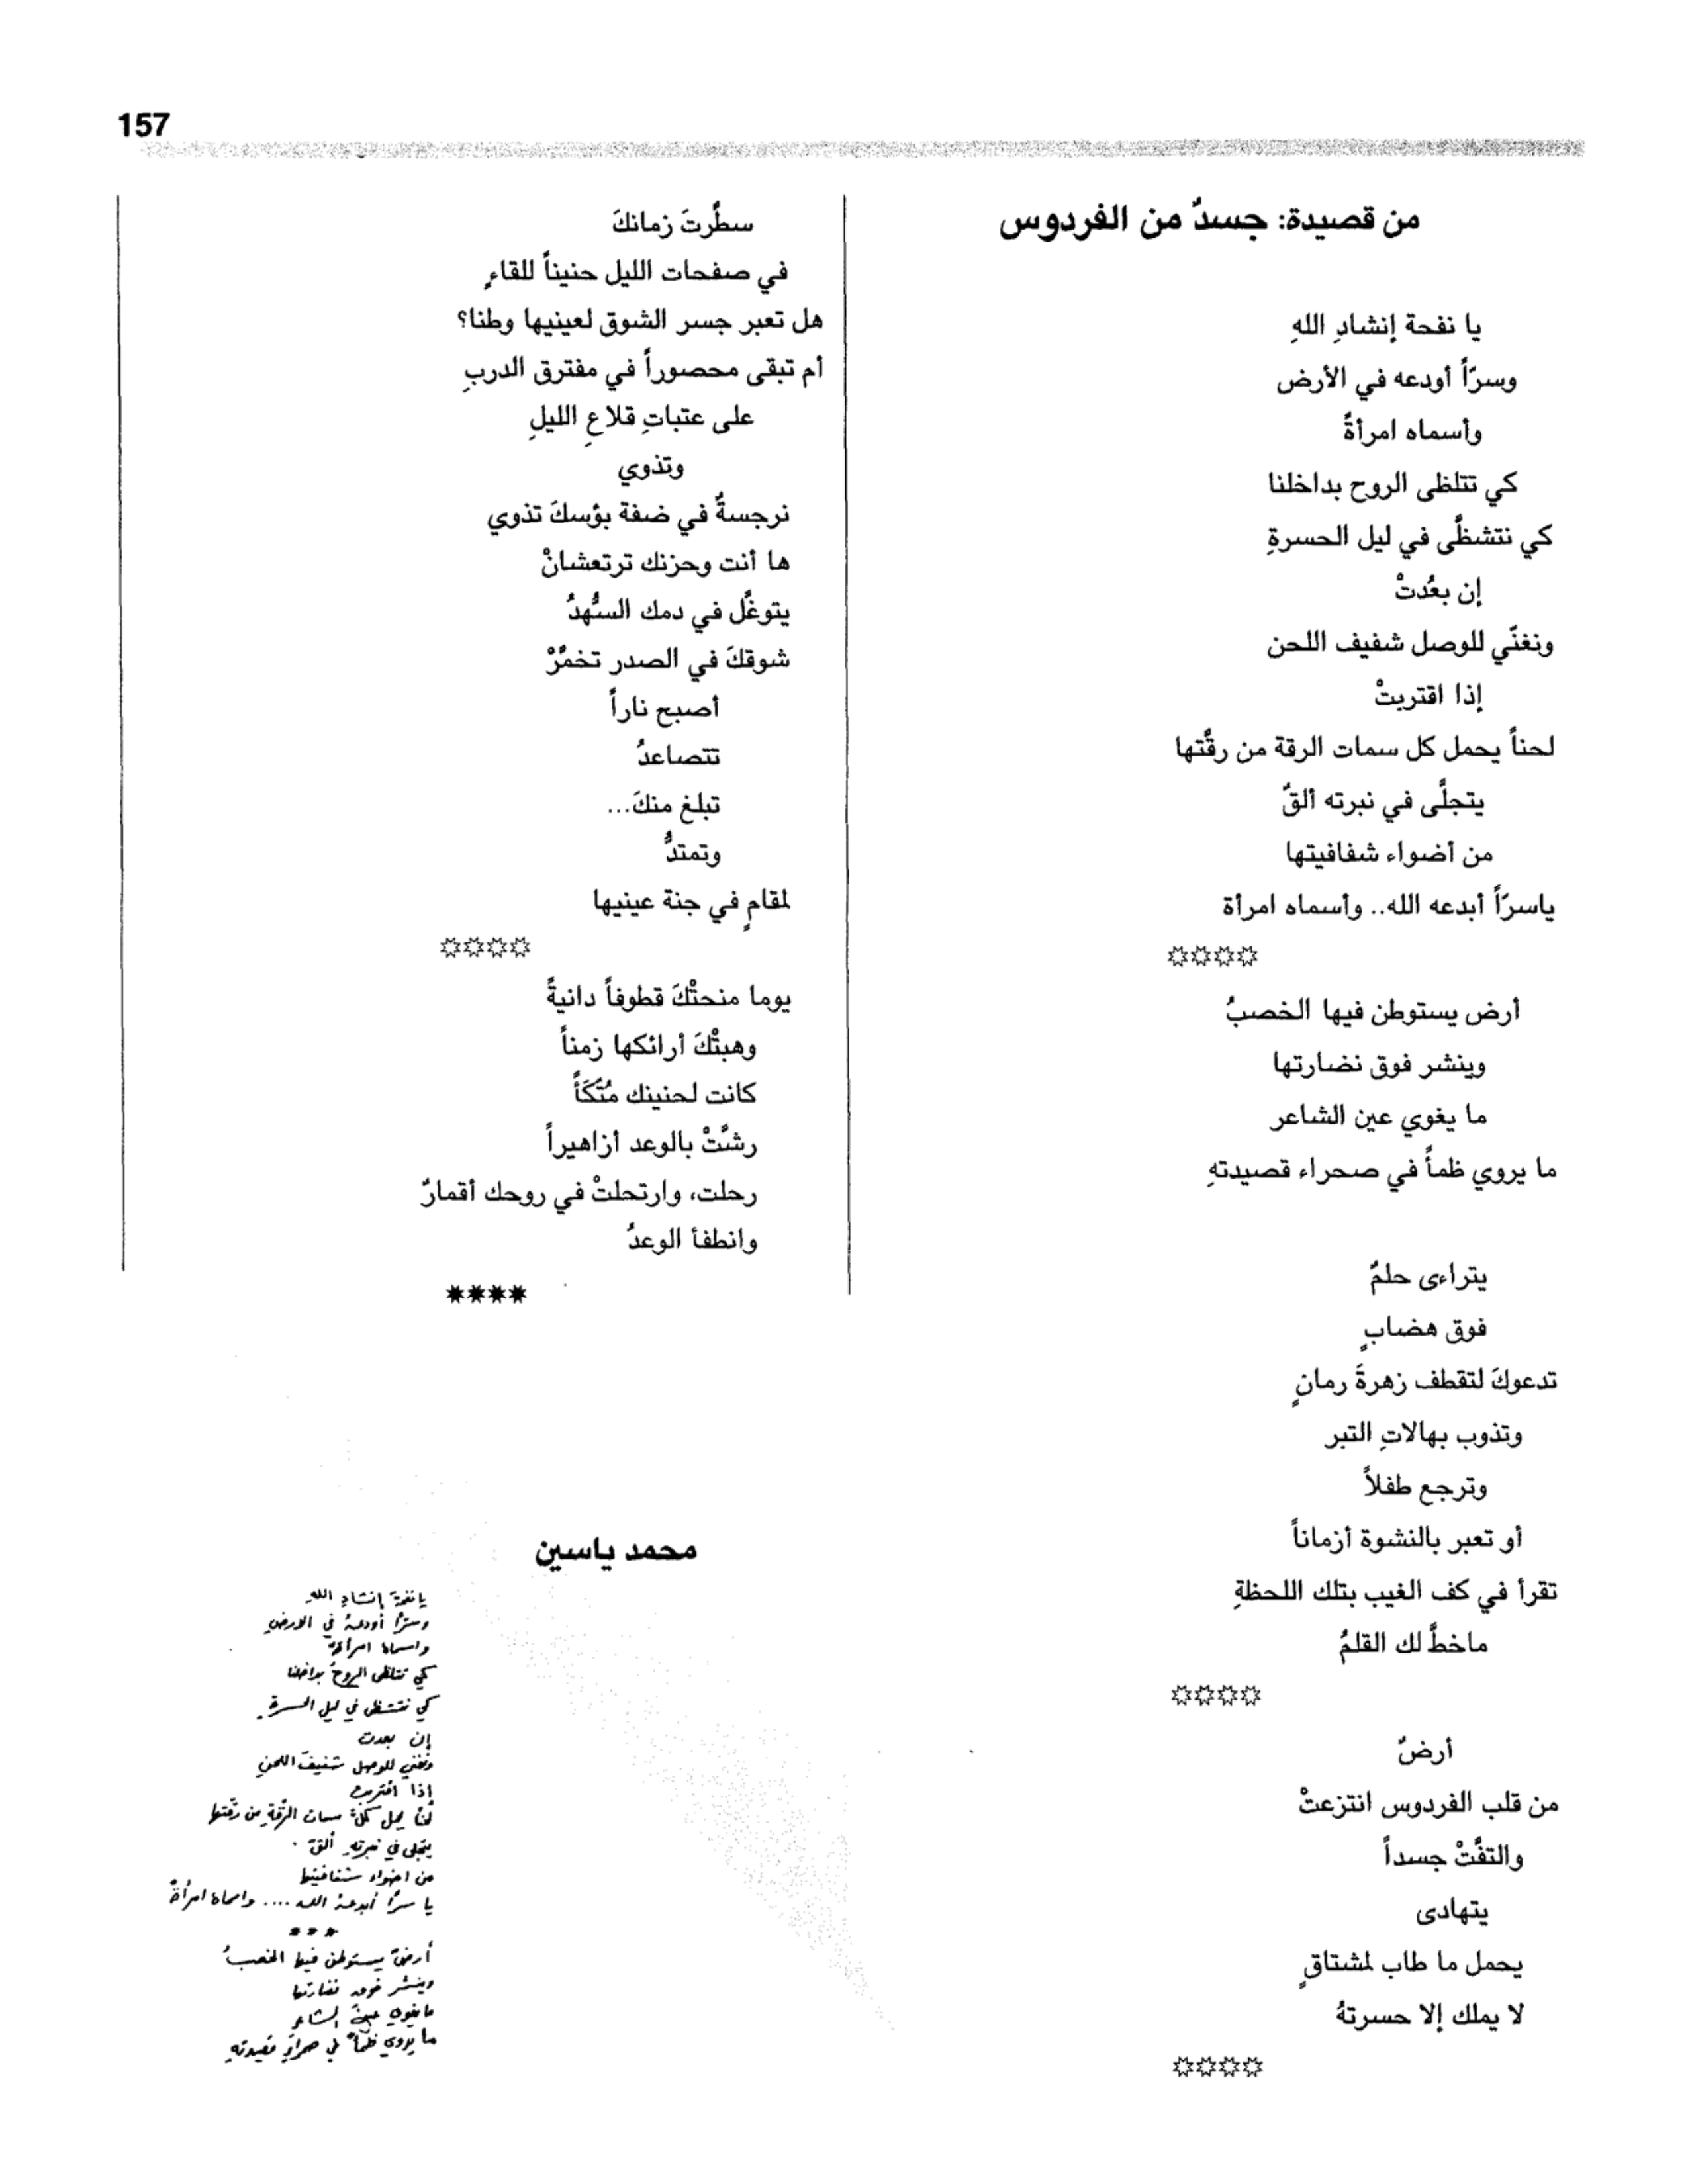 157
من قصيدة: جسدٌ من الفردوس
يا نفحة إنشادِ اللهِ
وسرّاً أودعه في الأرض
وأسماه امرأةً
كي تتلظى الروح بداخلنا
كي نتشظَّى في ليل الحسرةِ
إن بعُدتْ
ونغنّي للوصل شفيف اللحن
إذا اقتربتْ
لحناً يحمل كل سمات الرقة من رقَّتها
يتجلَّى في نبرته ألقٌ
من أضواء شفافيتها
ياسرّاً أبدعه الله.. وأسماه امرأة
✲✲✲✲
أرض يستوطن فيها الخصبُ
وينشر فوق نضارتها
ما يغوي عين الشاعر
ما يروي ظمأً في صحراء قصيدتهِ
يتراءى حلمٌ
فوق هضابٍ
تدعوكَ لتقطف زهرةَ رمانٍ
وتذوب بهالاتِ التبر
وترجع طفلاً
أو تعبر بالنشوة أزماناً
تقرأ في كف الغيب بتلك اللحظةِ
ماخطَّ لك القلمُ
✲✲✲✲
أرضٌ
من قلب الفردوس انتزعتْ
والتفَّتْ جسداً
يتهادى
يحمل ما طاب لمشتاقٍ
لا يملك إلا حسرتهُ
✲✲✲✲
سطَّرتَ زمانكَ
في صفحات الليل حنيناً للقاءٍ
هل تعبر جسر الشوق لعينيها وطنا؟
أم تبقى محصوراً في مفترق الدربِ
على عتباتِ قلاعِ الليلِ
وتذوي
نرجسةٌ في ضفة بؤسكَ تذوي
ها أنت وحزنك ترتعشانْ
يتوغَّل في دمك السُّهدُ
شوقكَ في الصدر تخمَّرْ
أصبح ناراً
تتصاعدُ
تبلغ منكَ...
وتمتدُّ
لمقامٍ في جنة عينيها
✲✲✲✲
يوما منحتْكَ قطوفاً دانيةً
وهبتْكَ أرائكها زمناً
كانت لحنينك مُتَّكَأً
رشَّتْ بالوعد أزاهيراً
رحلت، وارتحلتْ في روحك أقمارٌ
وانطفأ الوعدُ
✷✷✷✷
محمد ياسين
يا نفحةَ إنشادِ اللهِ
وسرّاً أودعهُ في الارضِ
واسماهُ امرأةً
كي تتلظى الروحُ بداخلنا
كي نتشظى في ليل الحسرةِ
إن بعدت
ونغني للوصل شفيفَ اللحنِ
إذا اقتربت
لحناً يحمل كلَّ سمات الرّقةِ من رقّتها
يتجلى في نبرتهِ ألقٌ
من اضواء شفافيتها
يا سرّاً أبدعهُ الله .... واسماهُ امرأةً
* * *
أرضٌ يستوطن فيها الخصبُ
وينشر فوق نضارتها
ما يغوي عينَ الشاعر
ما يروي ظمأً في صحراءِ قصيدتهِ